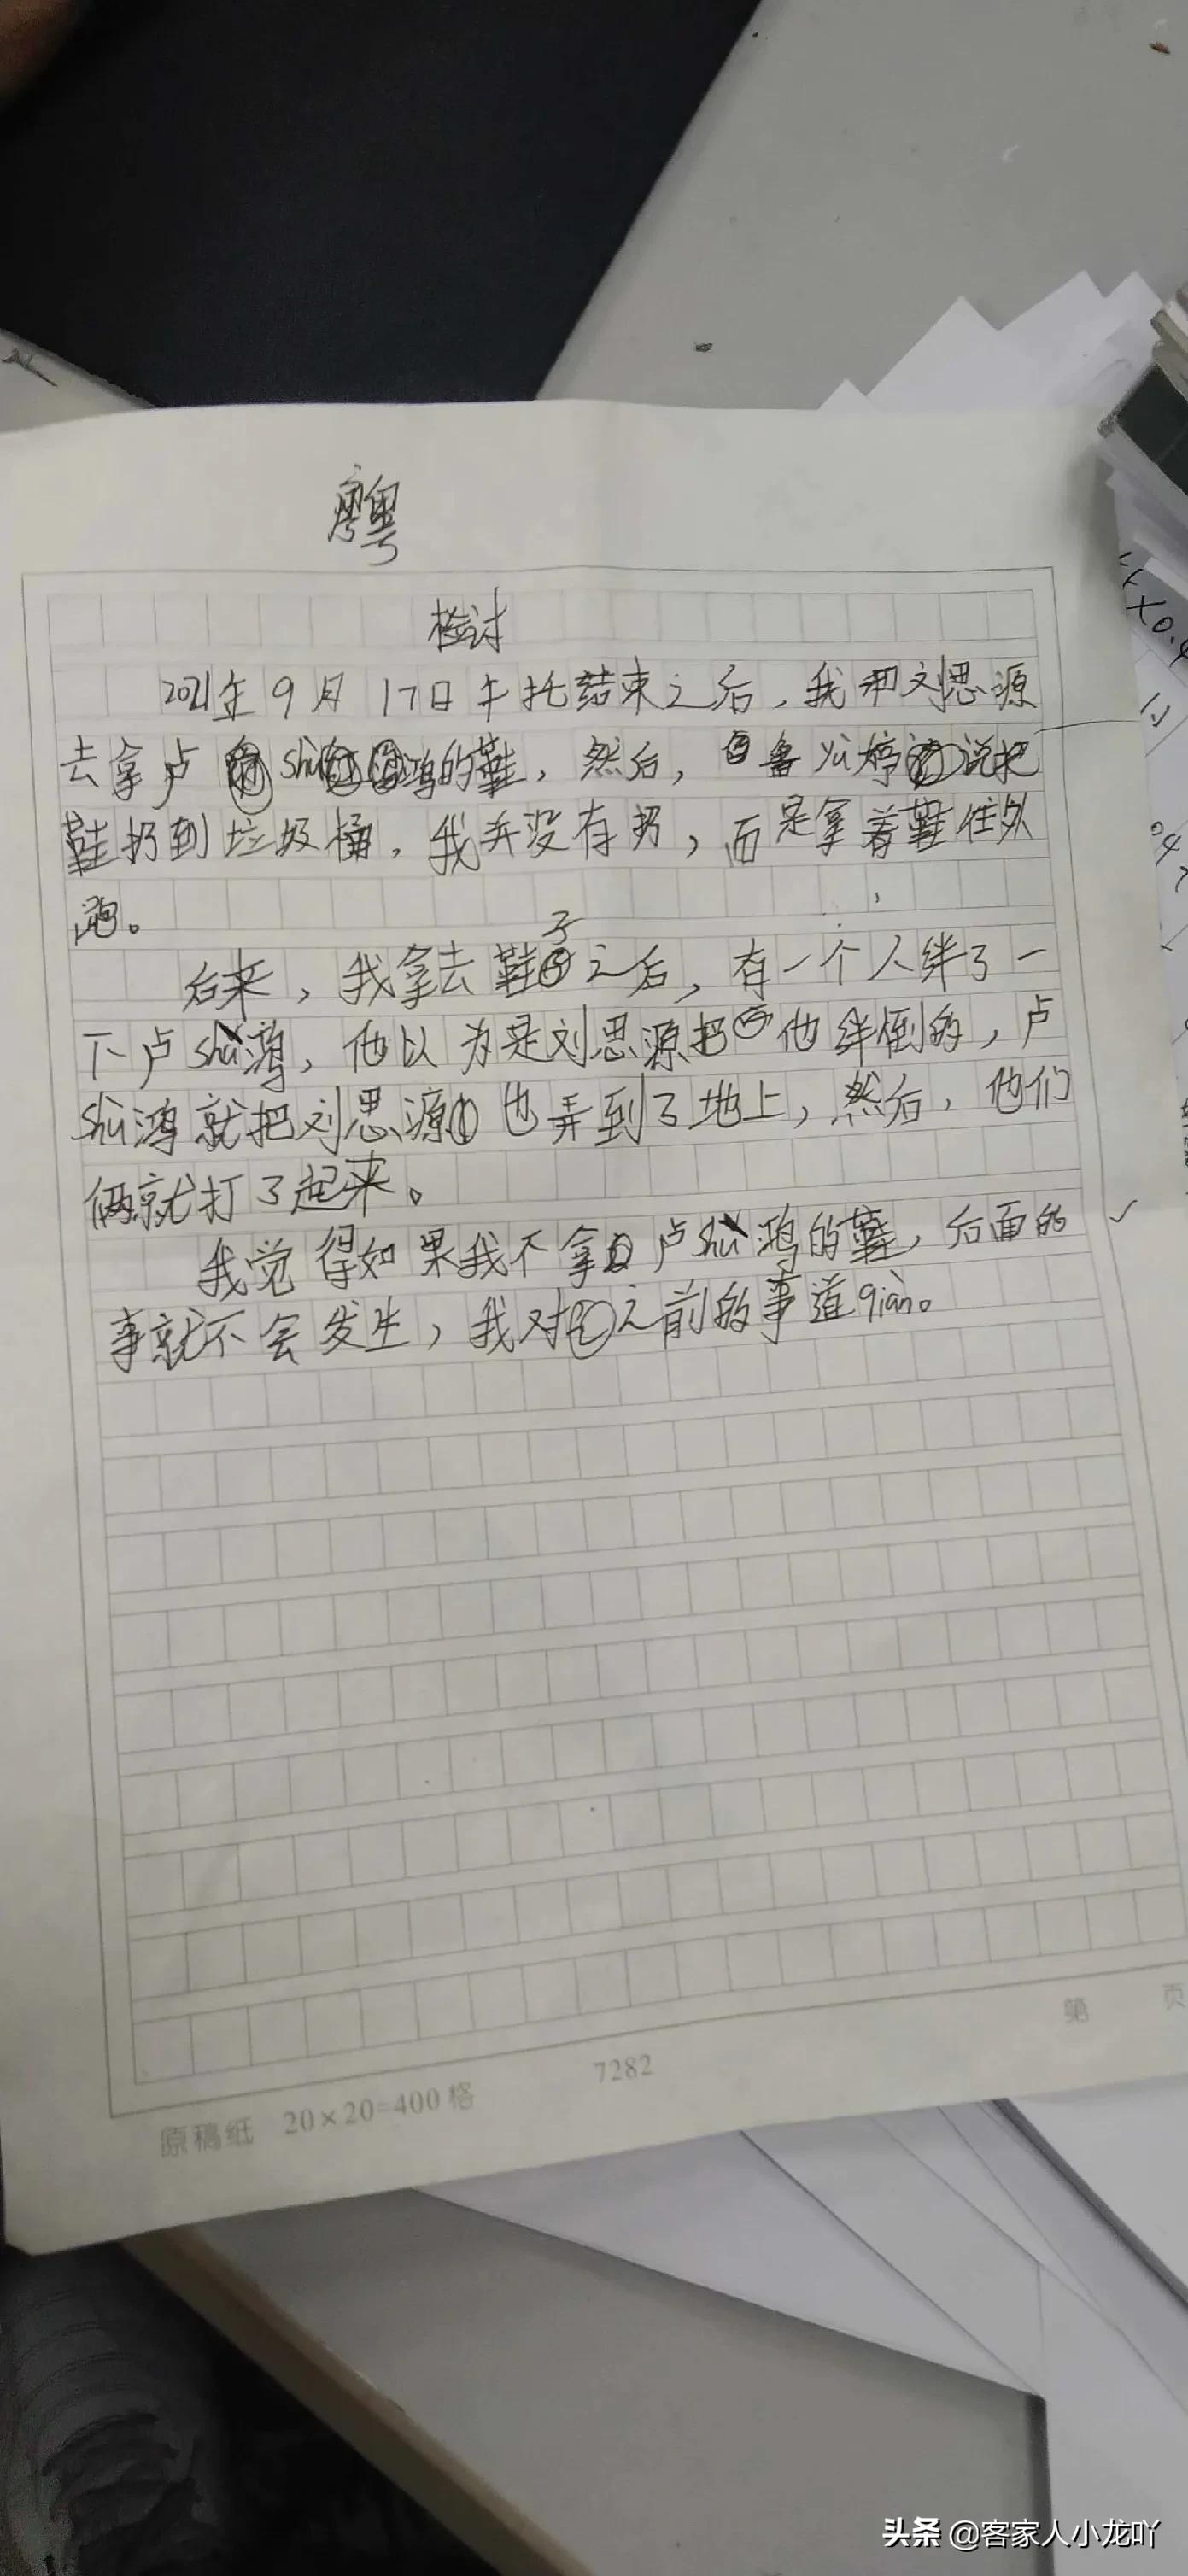 检讨
2021年9月17日午托结束之后，我和刘思源
去拿卢shu鸿的鞋，然后，鲁以婷说把
鞋扔到垃圾桶，我并没有扔，而是拿着鞋往外
跑。
后来，我拿去鞋子之后，有一个人绊了一
下卢shu鸿，他以为是刘思源把他绊倒的，卢
shu鸿就把刘思源也弄到了地上，然后，他们
俩就打了起来。
我觉得如果我不拿卢shu鸿的鞋，后面的
事就不会发生，我对之前的事道qiàn。
原稿纸 20×20=400格 7282 第 页
头条 @客家人小龙吖